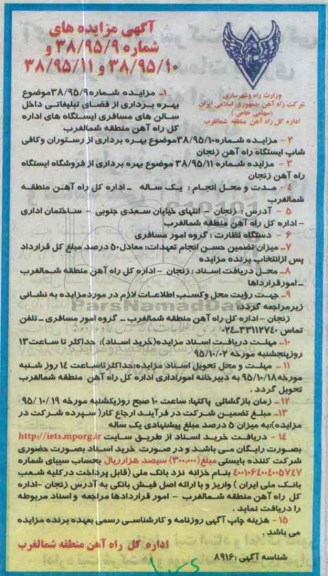 آگهی مزایده های
شماره ۳۸/۹۵/۹ و
۳۸/۹۵/۱۰ و ۳۸/۹۵/۱۱
وزارت راه و شهرسازی
شرکت راه آهن جمهوری اسلامی ایران
(سهامی خاص)
اداره کل راه آهن منطقه شمالغرب
۱- مزایده شماره ۳۸/۹۵/۹ موضوع
بهره برداری از فضای تبلیغاتی داخل
سالن های مسافری ایستگاه های اداره
کل راه آهن منطقه شمالغرب
۲ - مزایده شماره ۳۸/۹۵/۱۰ موضوع بهره برداری از رستوران وکافی
شاپ ایستگاه راه آهن زنجان
۳ - مزایده شماره ۳۸/۹۵/۱۱ موضوع بهره برداری از فروشگاه ایستگاه
راه آهن زنجان
۴ - مدت و محل انجام : یک ساله - اداره کل راه آهن منطقه
شمالغرب
۵ - آدرس : زنجان - انتهای خیابان سعدی جنوبی - ساختمان اداری
- اداره کل راه آهن منطقه شمالغرب
۶ - دستگاه نظارت : گروه امور مسافری
۷ - میزان تضمین حسن انجام تعهدات: معادل ۵۰ درصد مبلغ کل قرارداد
پس ازانتخاب برنده مزایده
۸ - محل دریافت اسناد : زنجان - اداره کل راه آهن منطقه شمالغرب
- امور قراردادها
۹ - جهت رؤیت محل وکسب اطلاعات لازم در مورد مزایده به نشانی
زیرمراجعه گردد:
زنجان - اداره کل راه آهن منطقه شمالغرب - گروه امور مسافری - تلفن
تماس ۳۳۱۱۲۷۴۰-۰۲۴
۱۰ - مهلت دریافت اسناد مزایده(خرید اسناد): حداکثر تا ساعت ۱۳
روزپنجشنبه مورخه ۹۵/۱۰/۰۲
۱۱ - مهلت و محل تحویل اسناد مزایده: حداکثر تاساعت ۱۴ روز شنبه
مورخه ۹۵/۱۰/۱۸ به دبیرخانه اموراداری اداره کل راه آهن منطقه شمالغرب
تحویل گردد .
۱۲ - زمان بازگشائی پاکتها: ساعت ۱۰ صبح روزیکشنبه مورخه ۹۵/۱۰/۱۹
۱۳ - مبلغ تضمین شرکت در فرآیند ارجاع کار( سپرده شرکت در
مزایده):به میزان ۵ درصد مبلغ پیشنهادی یک ساله
۱۴ - دریافت خرید اسناد از طریق سایت http://iets.mporg.ir
بصورت رایگان می باشد و در صورت خرید اسناد بصورت حضوری
شرکت کننده بایستی مبلغ(۳۰۰,۰۰۰) سیصد هزارریال بحساب سیبای شماره
بنام خزانه نزد بانک ملی (قابل پرداخت درکلیه شعب
بانک ملی ایران ) واریز و با ارائه اصل فیش بانکی به آدرس زنجان -اداره
کل راه آهن منطقه شمالغرب - امور قراردادها مراجعه و اسناد مربوطه
را دریافت نماید .
۱۵ - هزینه چاپ آگهی روزنامه و کارشناسی رسمی بعهده برنده مزایده
می باشد .
اداره کل راه آهن منطقه شمالغرب
شناسه آگهی: ۸۹۱۶